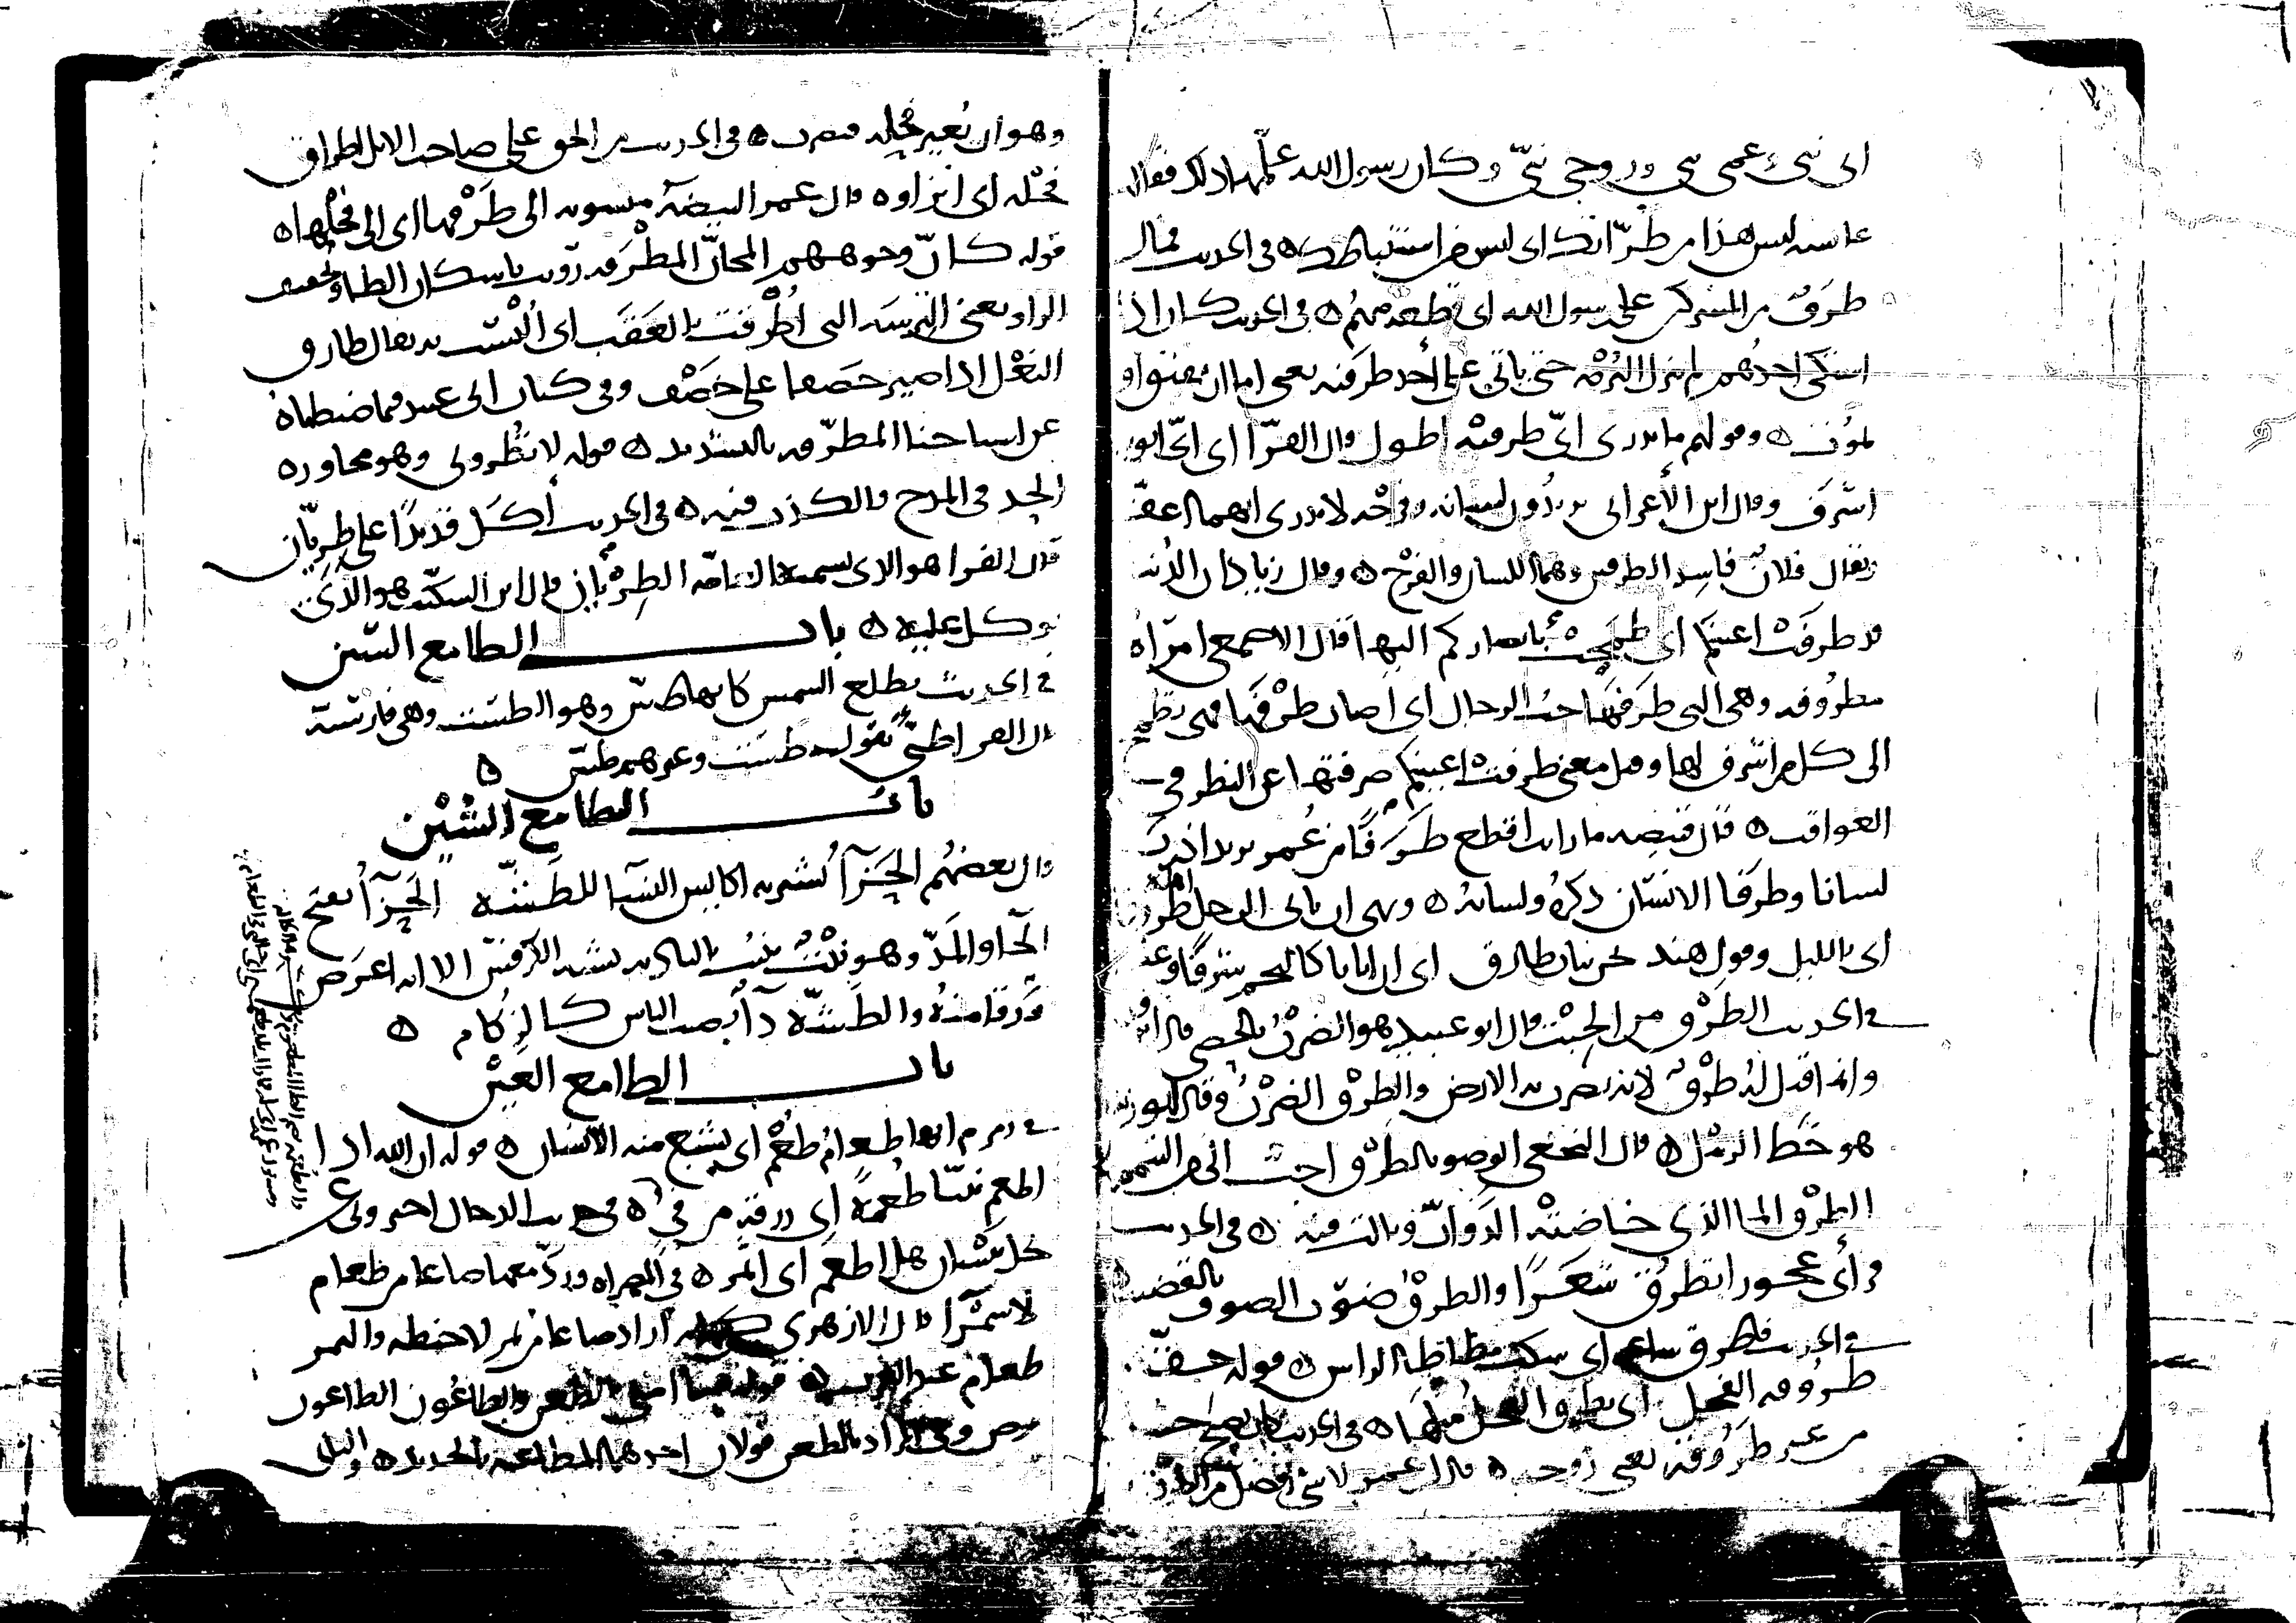 ابى نبي وعمي نبي وزوجي نبي وكان رسول الله علمها ذلك فقالت
عائشة ليس هذا من طرازك اي ليس من استنباطك ه في الحديث فمال
طرف من المشركين على رسول الله اي قطعة منهم ه في الحديث كان اذا
اشتكى احدهم لم تنزل البرمة حتى ياتي على احد طرفيه يعني اما ان يفيق او
يموت ه وقولهم ما يدري اي طرفيه اطول قال الفرا اي اي ابويه
اشرف وقال ابن الأعرابي يريدون لسانه وفرجه لا يدري ايهما اعف
ويقال فلان فاسد الطرفين وهما اللسان والفرج ه وقال زياد ان الدنيا
قد طرفت اعينكم اي طمحت بابصاركم اليها قال الاصمعي امراة
مطروفة وهي التي طرفها حب الرجال اي اصاب طرفها فهي تطمح
الى كل من اشرف لها وقيل معنى طرفت اعينكم صرفتها عن النظر في
العواقب ه قال قبيصة ما رايت اقطع طرفا من عمرو يريد اذرب
لسانا وطرفا الانسان ذكره ولسانه ه ونهى ان ياتي الرجل اهله طروقا
اي بالليل وقول هند نحن بنات طارق اي ان ابانا كالنجم شرفا وعلوا
في الحديث الطرق من الجبت قال ابو عبيد هو الضرب بالحصى
وانما قيل له طرق لانه يضرب به الارض والطرق الضرب وقال ابو زيد
هو خط الرمل ه قال النخعي الوضو بالطرق احب الي من التيمم
الطرق الما الذي خاضته الدواب وبالت فيه ه في الحديث
فرأى عجوزا تطرق شعرا والطرق ضرب الصوف بالقضيب
في الحديث فاطرق ساعة اي سكت مطاطا الراس ه قوله حقة
طروقة الفحل اي يطرق الفحل مثلها ه في الحديث كان يصبح جنبا
من غير طروقة يعني زوجة ه قال ابن عمر لا شي افضل من الطرق
وهو ان يعير فحله فيضرب ه في الحديث من الحق على صاحب الابل اطراق
فحله اي انزاوه ه قال عمر البيضة منسوبة الى طرقها اي الى فحلها ه
قوله كان وجوههم المجان المطرقة رويت باسكان الطا وتخفيف
الرا ويعني الترسة التي اطرقت بالعقب اي البست به يقال طارق
النعل اذا صير خصفا على خصف وفي كتاب ابي عبيد فيما ضبطناه
عن اشياخنا المطرقة بالتشديد ه قوله لا تطروني وهو مجاوزة
الحد في المدح والكذب فيه ه في الحديث أكل قديدا على طريان
قال الفرا هو الذي تسميه العامة الطريان قال ابن السكيت هو الذي
يوكل عليه ه باب الطا مع السين
في الحديث تطلع الشمس كانها طس وهو الطست وهي فارسية
قال الفرا طي تقول طست وغيرهم طس ه
باب الطا مع الشين
قال بعضهم الحزاة تشربه اكايس النسا للطشة الحزاة بفتح
الحا والمد وهو نبت ينبت بالبادية يشبه الكرفس الا انه اعرض
ورقا منه والطشة داء يصيب الناس كالزكام ه
باب الطا مع العين
في زمزم انها طعام طعم اي يشبع منه الانسان ه قوله ان الله اذا
اطعم نبيا طعمة اي رزقه من في ه في حديث الدجال اخبروني عن
نخل بيسان هل اطعم اي اثمر ه في المصراة ورد معها صاعا من طعام
لا سمرا قال الازهري اراد صاعا من تمر لا حنطة والتمر
طعام عند العرب ه قوله فنا امتي بالطعن والطاعون الطاعون
مرض وفي المراد بالطعن قولان احدهما المطاعنة بالحديد ه والثاني